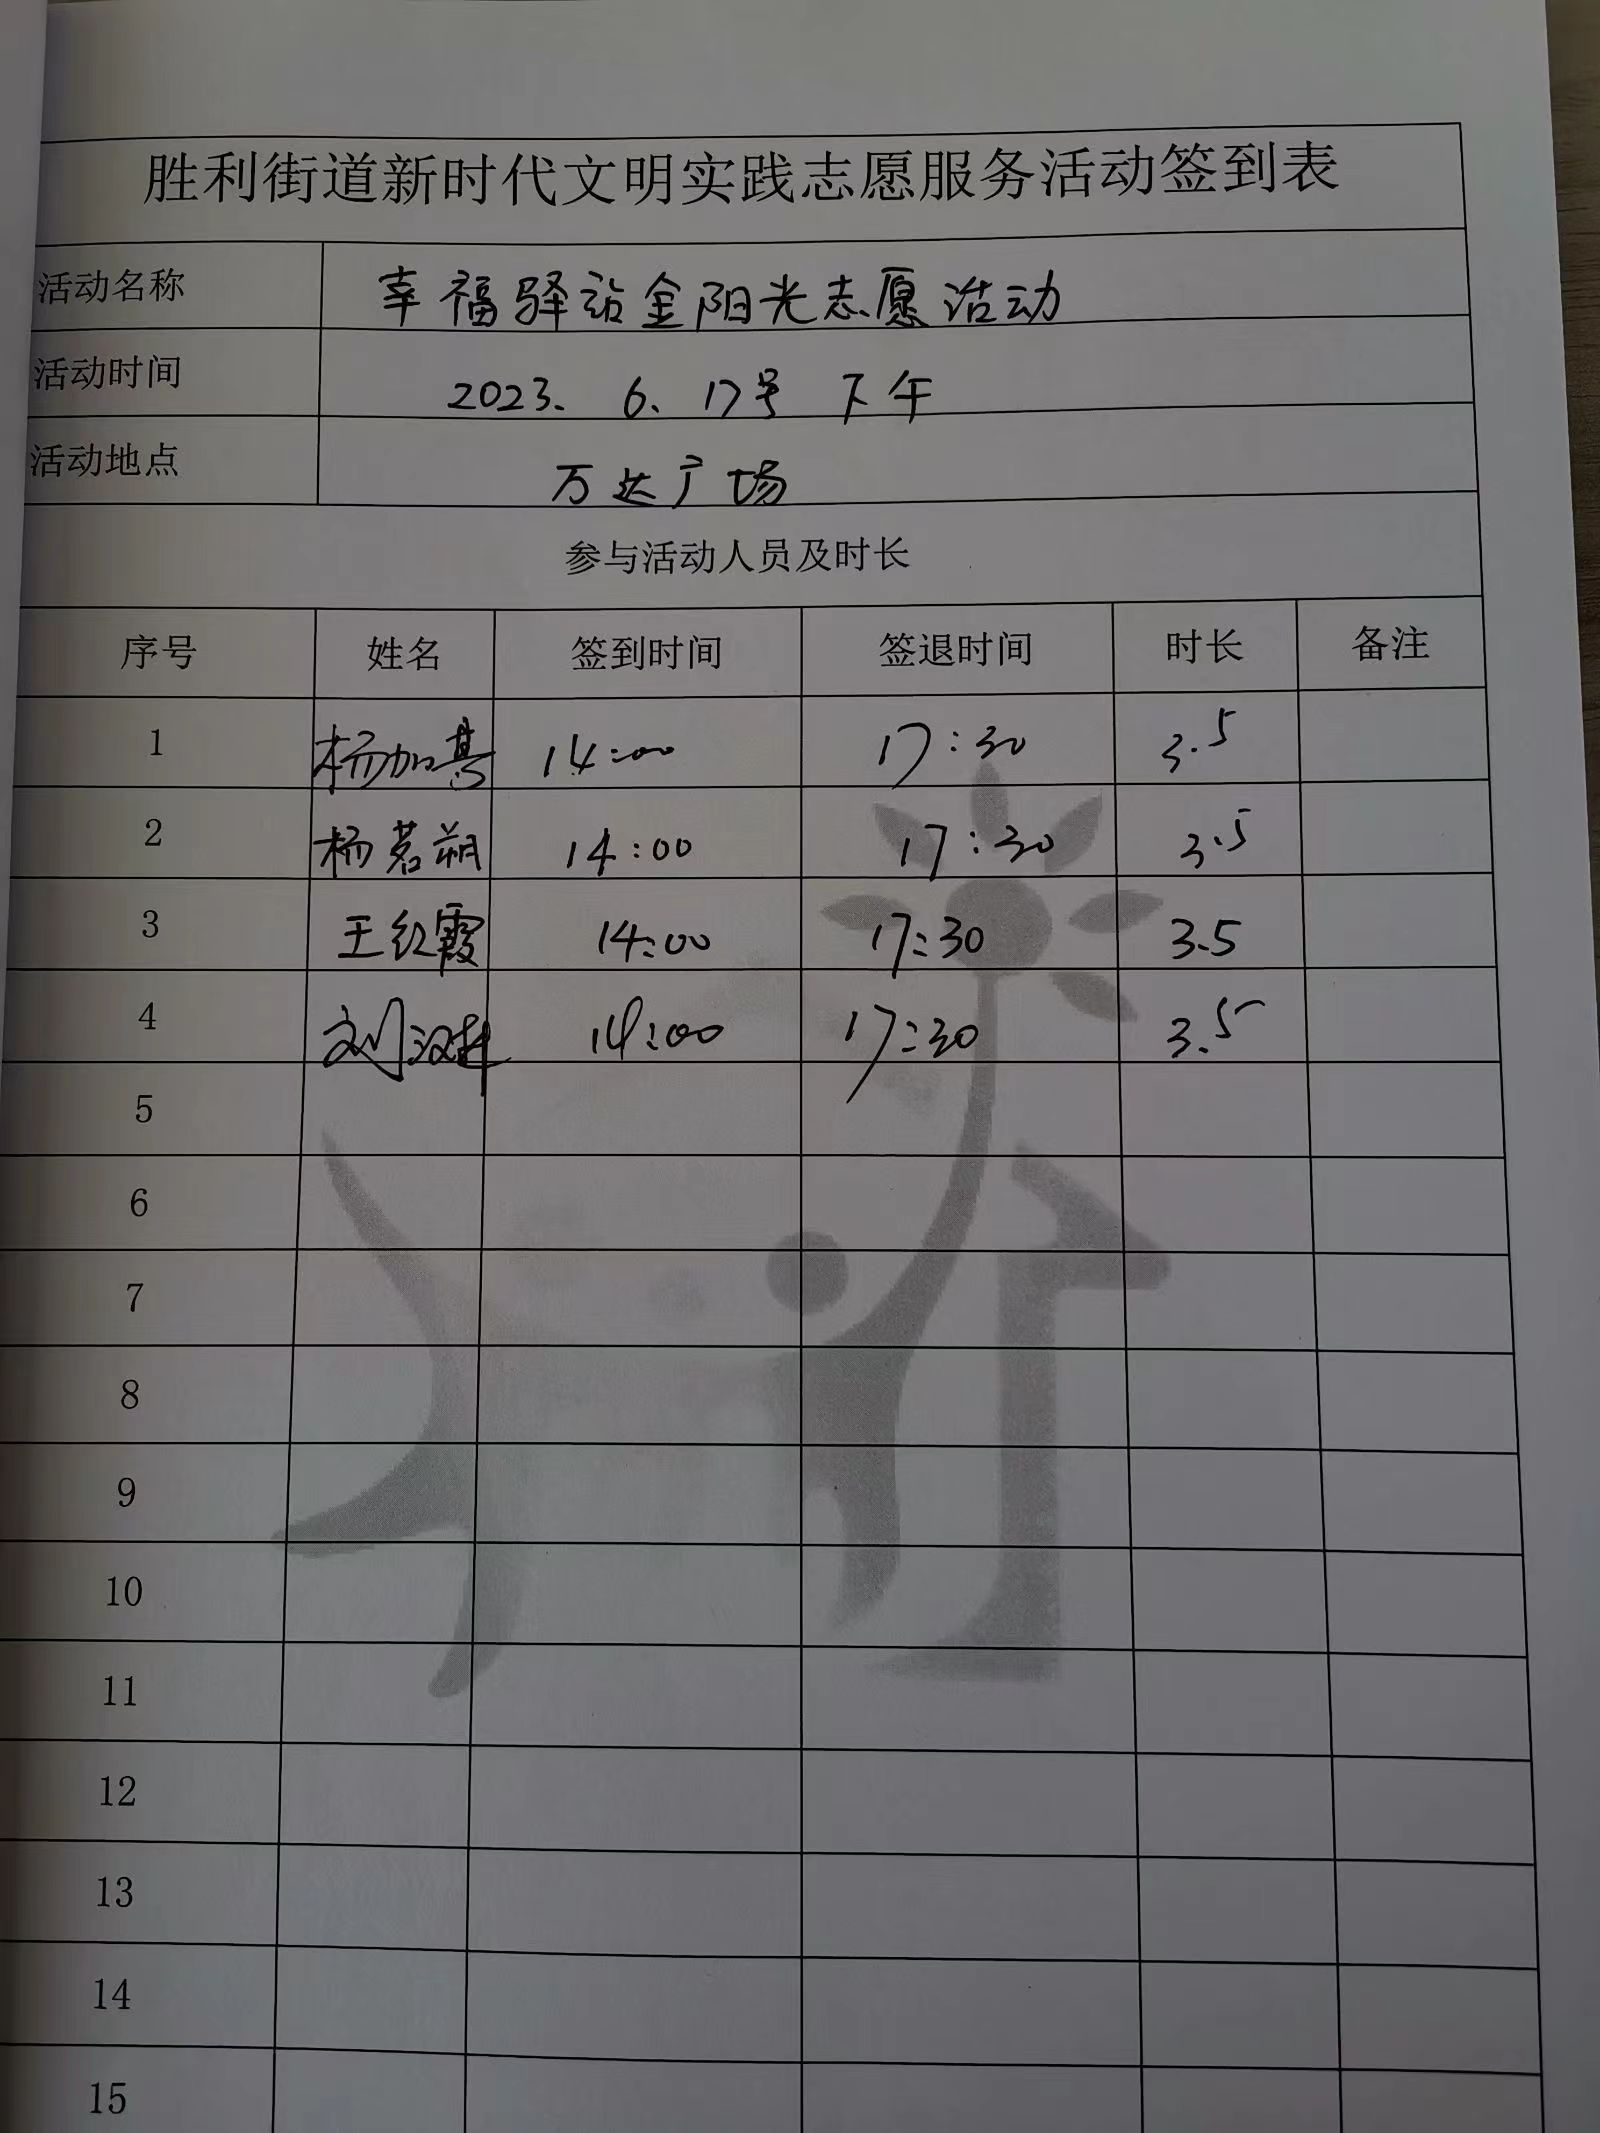 胜利街道新时代文明实践志愿服务活动签到表
活动名称 幸福驿站金阳光志愿活动
活动时间 2023. 6. 17号 下午
活动地点 万达广场
参与活动人员及时长
序号 姓名 签到时间 签退时间 时长 备注
1 杨加 14:00 17:30 3.5
2 杨茗朔 14:00 17:30 3.5
3 王红霞 14:00 17:30 3.5
4 刘汉 14:00 17:30 3.5
5
6
7
8
9
10
11
12
13
14
15